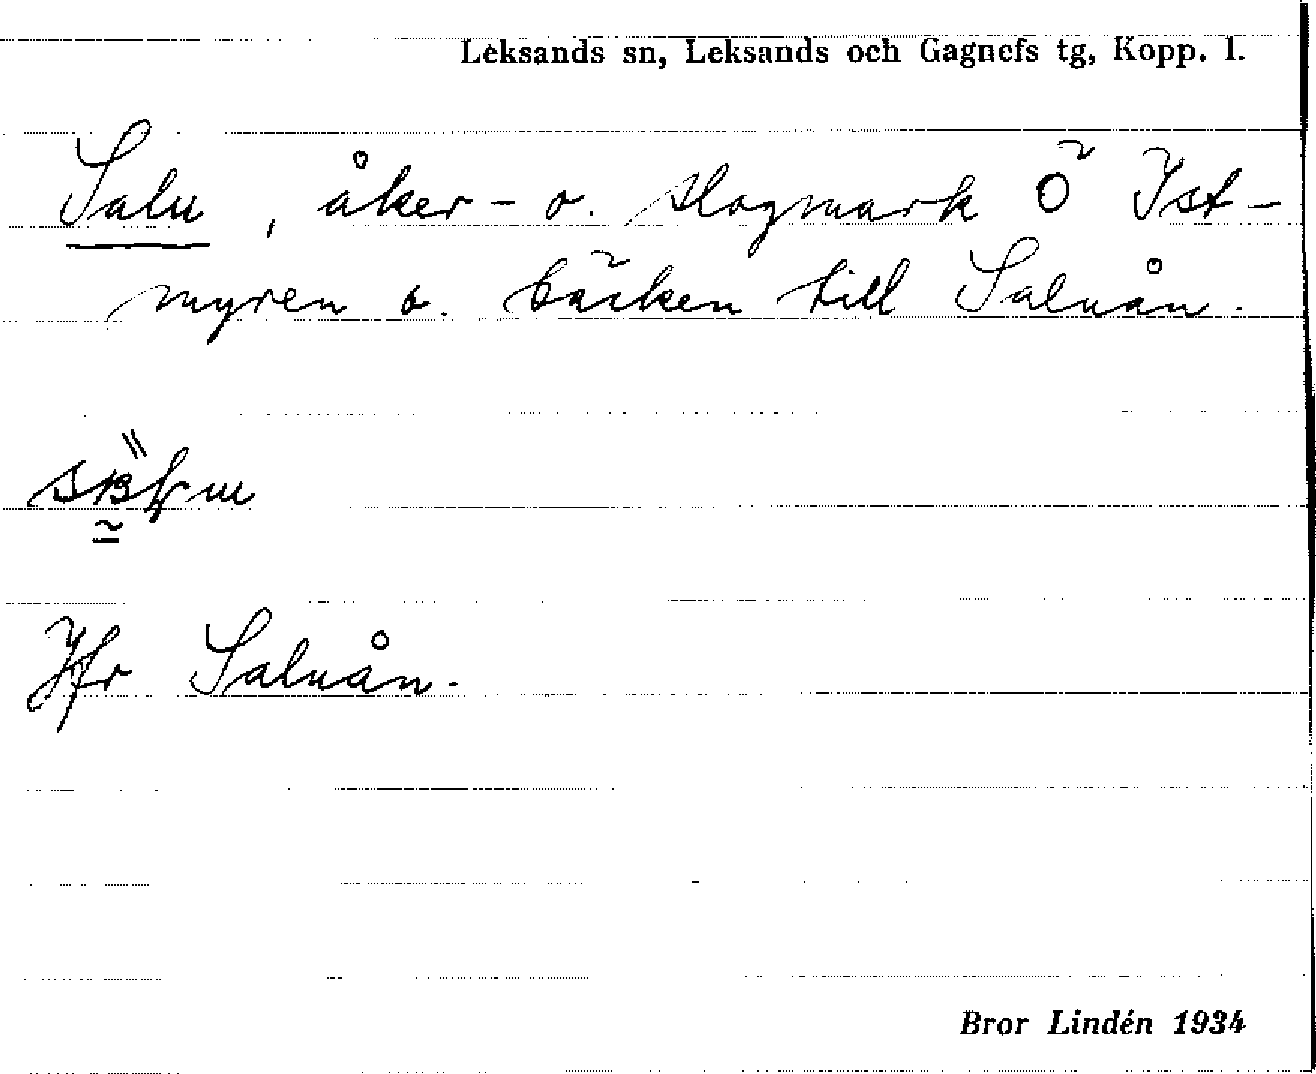 Leksands sn, Leksands och Gagnefs tg, Kopp. l.
Salu, åker- o. slogmark Ö Ist-
myren o. bäcken till Saluån.
Jfr Saluån.
Bror Lindén 1934